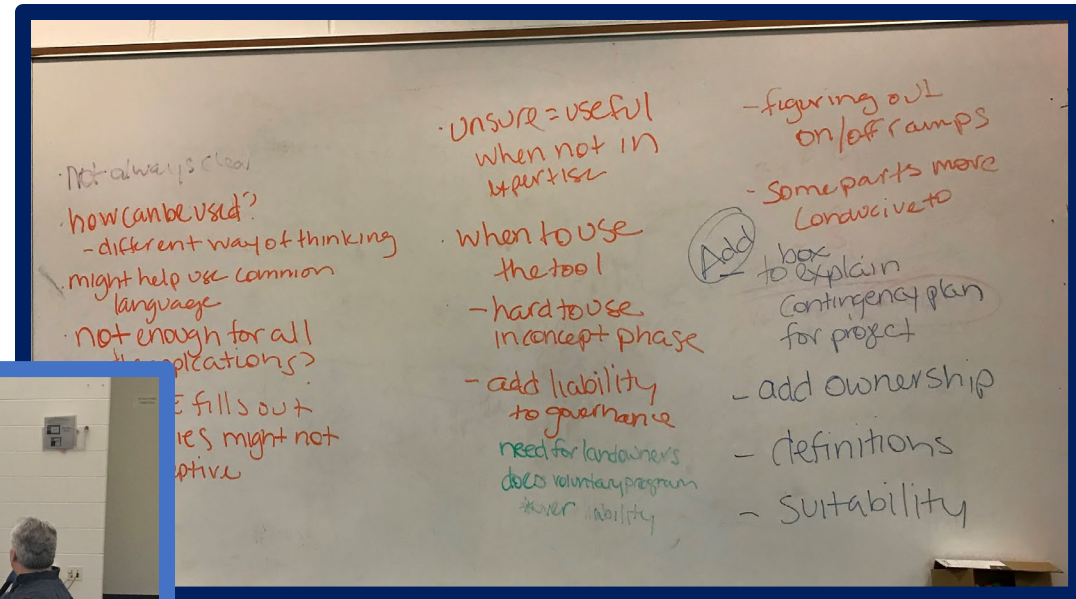 · Not always clear
· how can be used?
- different way of thinking
· might help use common
language
· not enough for all
fills out
might not
· unsure = useful
when not in
expertise
· when to use
the tool
- hard to use
in concept phase
- add liability
to governance
need for landowners
does voluntary program
liability
- figuring out
on/off ramps
- Some parts more
conducive to
Add box
to explain
contingency plan
for project
- add ownership
- definitions
- suitability